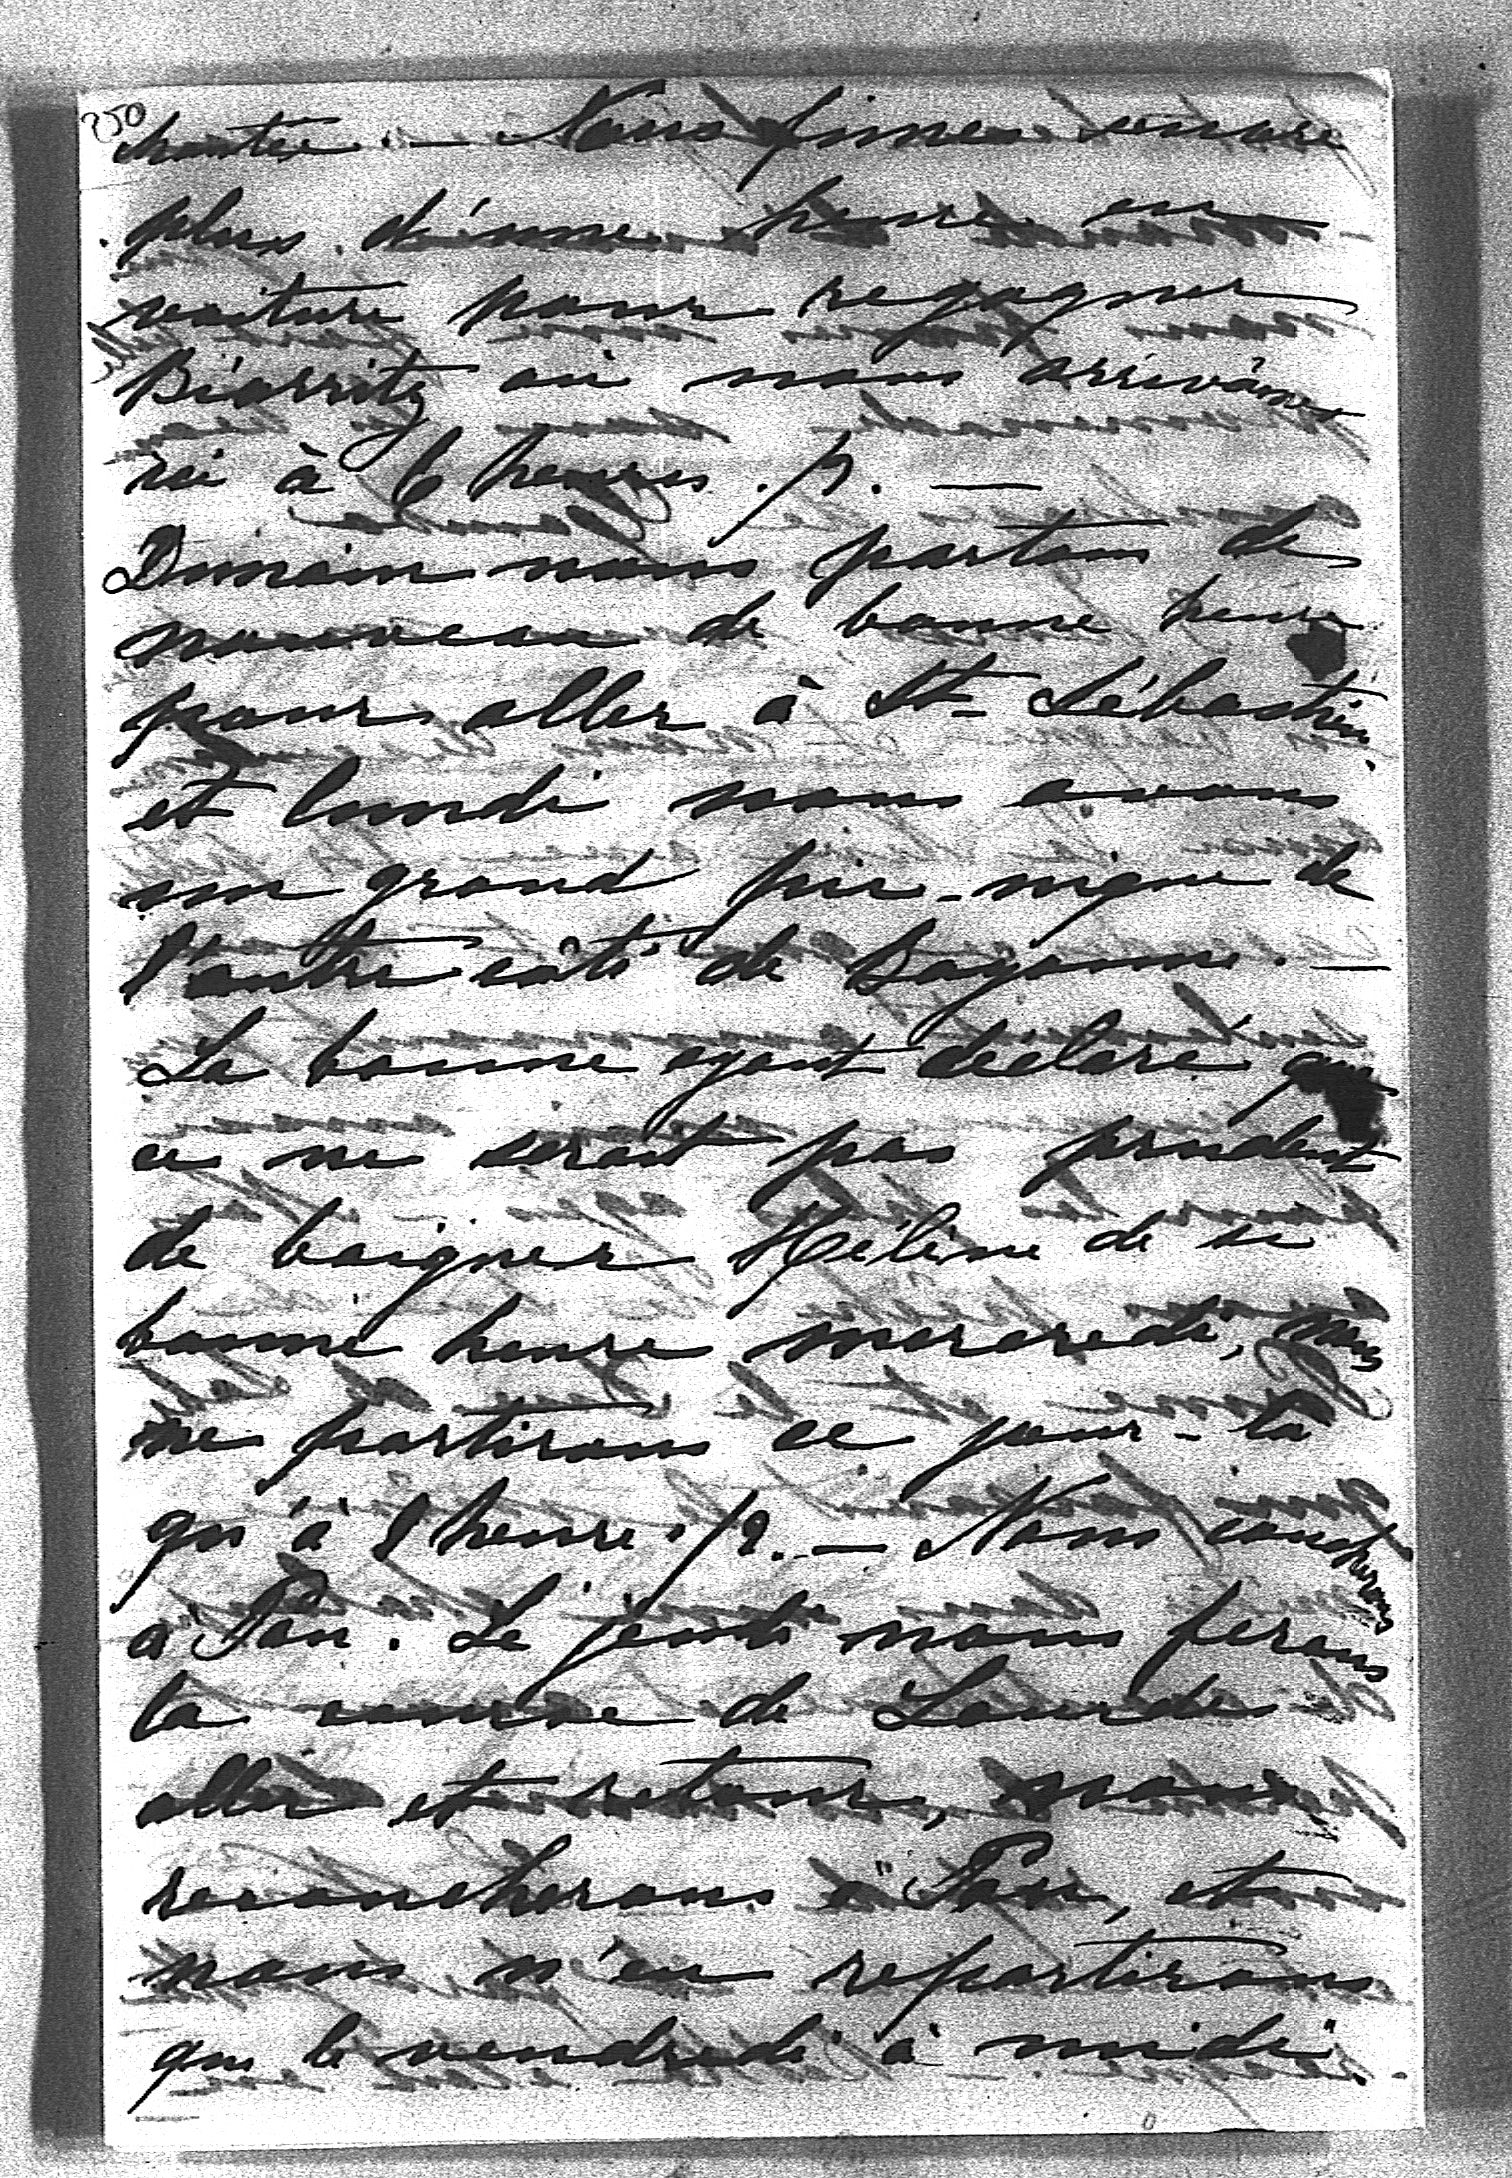 250
montée. — Nous fûmes encore
plus d'une heure en
voiture pour regagner
Biarritz où nous arrivâmes
ici à 6 heures ½. —
Demain nous partons de
nouveau de bonne heure
pour aller à St-Sébastien,
et lundi nous avons
un grand pic-nique de
l'autre côté de Bayonne. —
La bonne ayant déclaré que
ce ne serait pas prudent
de baigner Hélène de si
bonne heure mercredi, nous
ne partirons ce jour-là
qu'à 1 heure 1/2. — Nous coucherons
à Pau. Le jeudi nous ferons
la course de Lourdes
aller et retour, nous
recoucherons à Pau, et
nous n'en repartirons
que le vendredi à midi.